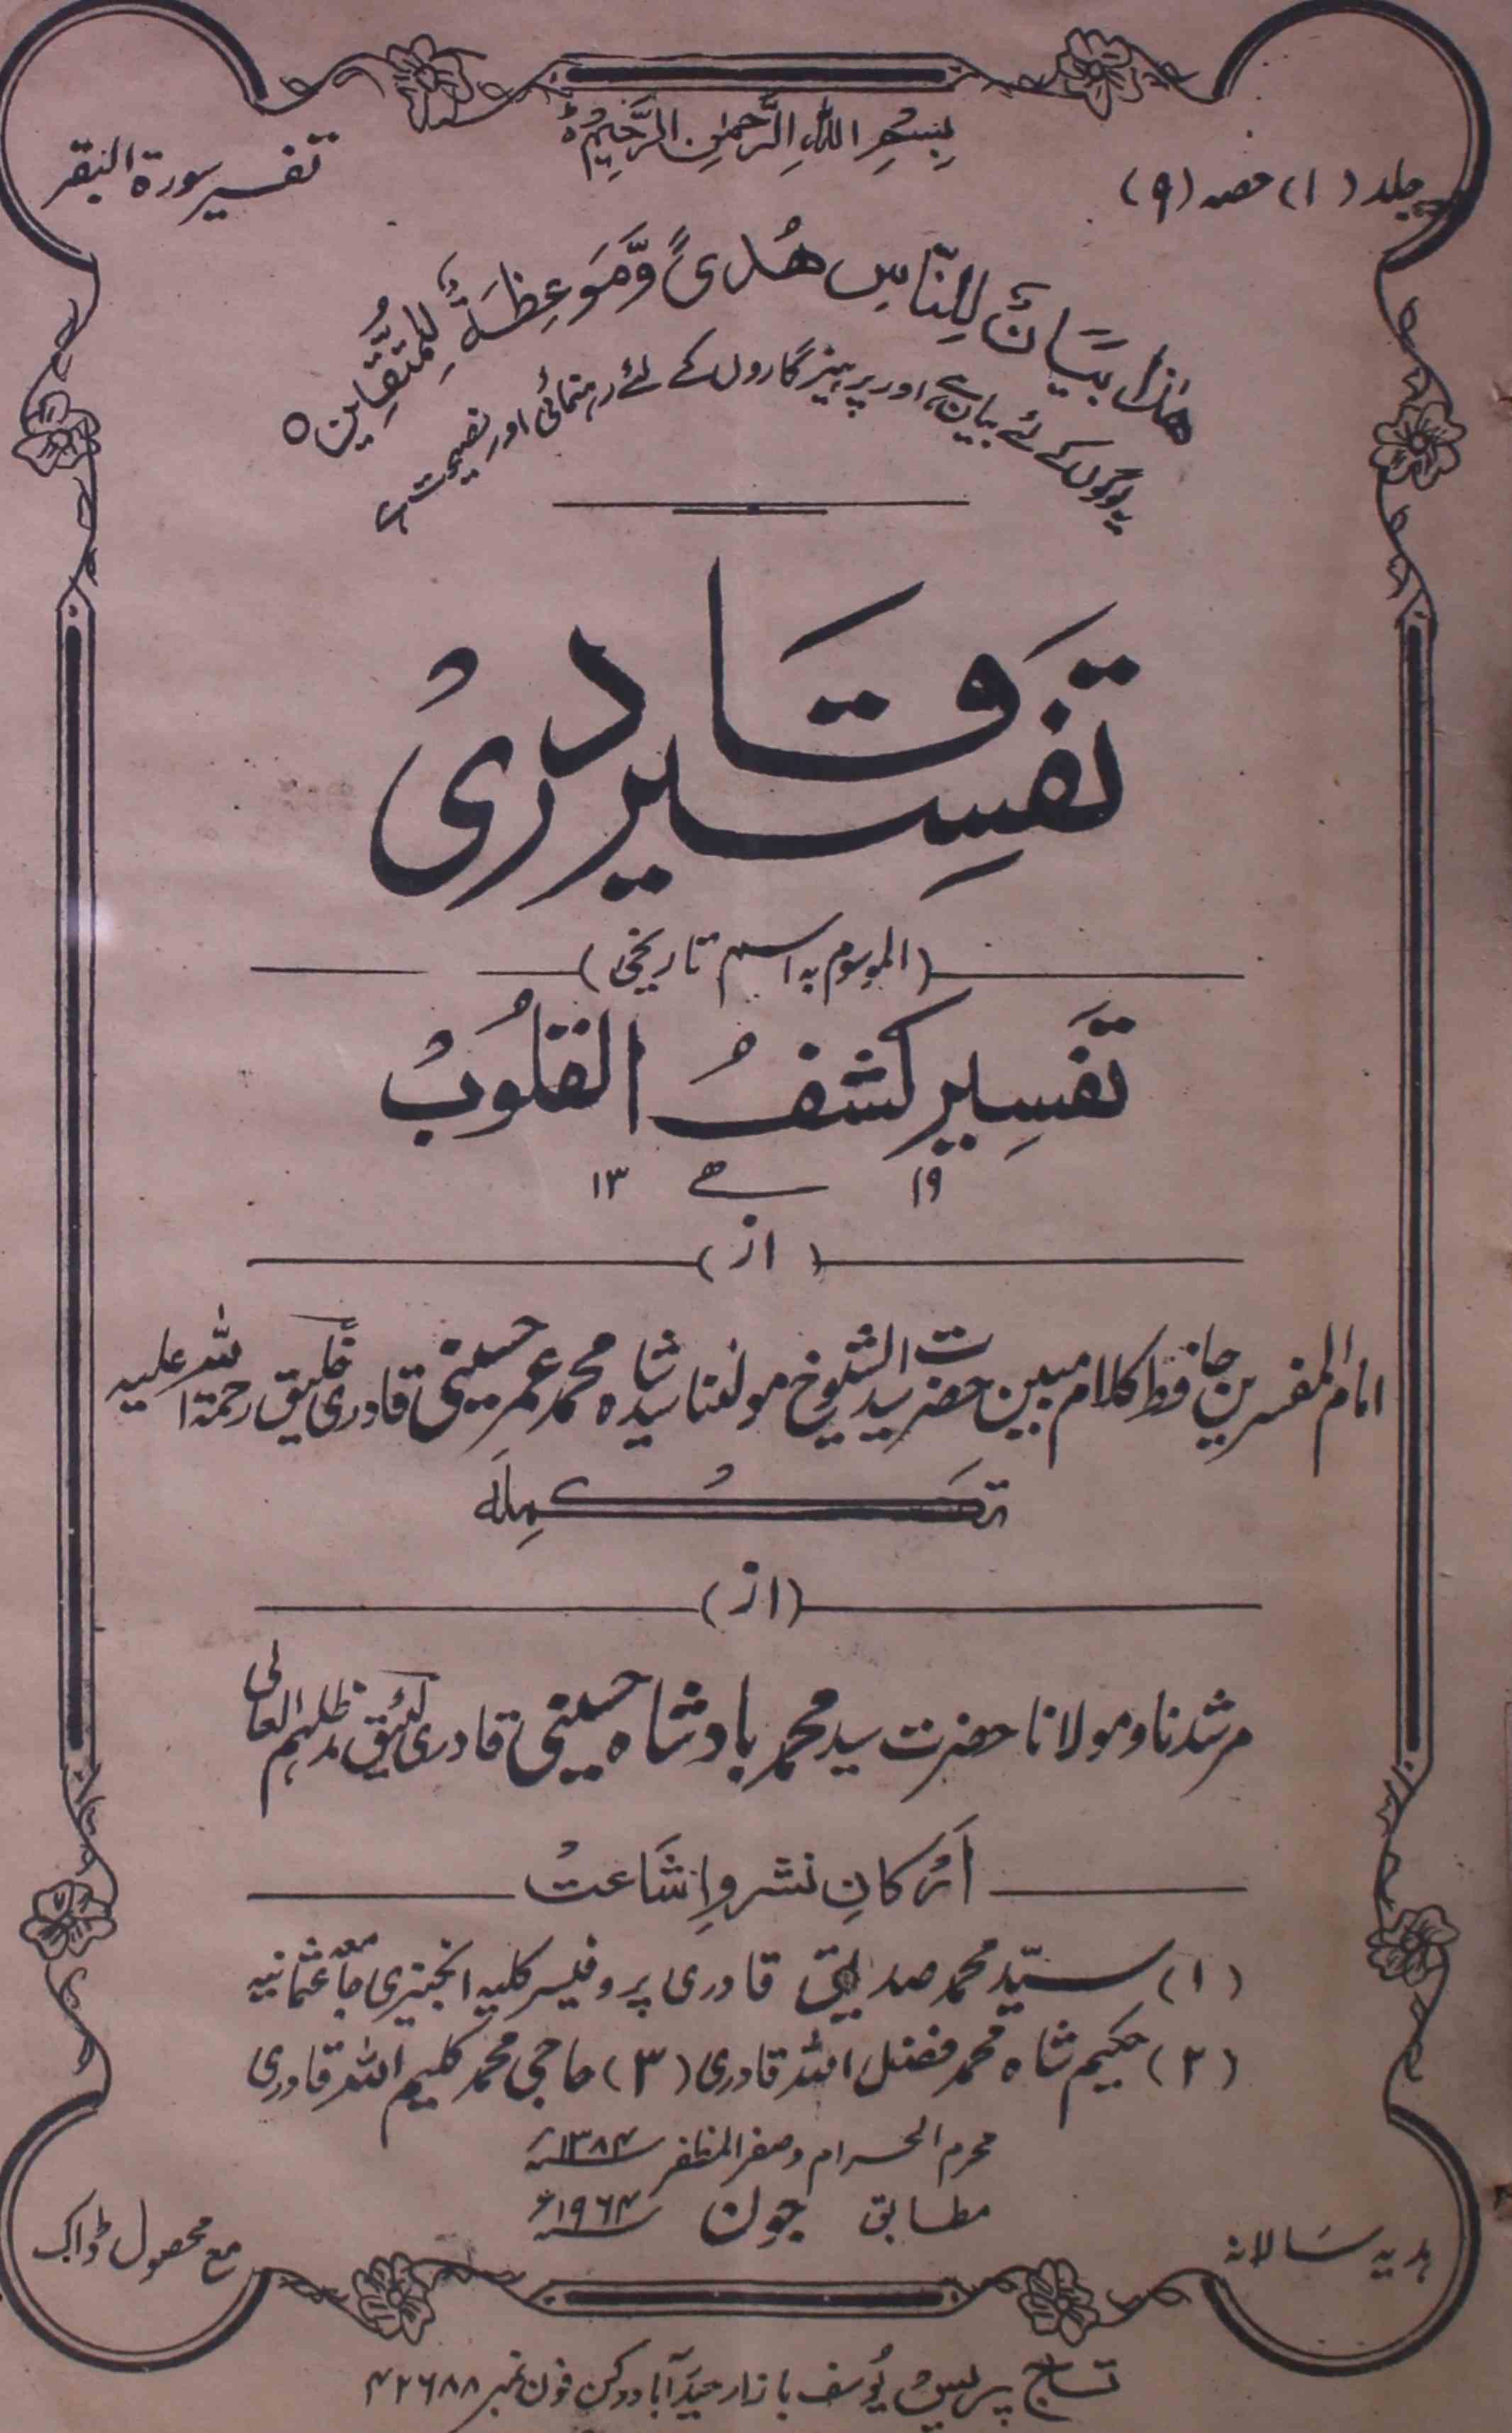 بِسْمِ اللہِ الرَّحْمٰنِ الرَّحِیْمِ
جلد (۱) حصہ (۹)
تفسیر سورۃ البقر
ھٰذَا بَیَانٌ لِّلنَّاسِ ھُدًی وَّمَوعِظَۃٌ لِّلْمُتَّقِینَ ○
یہ لوگوں کے لئے بیان ہے، اور پرہیزگاروں کے لئے رہنمائی اور نصیحت ہے
تفسیر قادری
(الموسوم بہ اسم تاریخی)
تفسیر کشف القلوب
۱۹ ھے ۱۳
(از)
امام المفسرین حافظ کلام مبین حضرت سید الشیوخ مولٰنا سید شاہ محمد عمر حسینی قادری خلیق رحمۃ اللہ علیہ
تکملہ
(از)
مرشدنا و مولانا حضرت سید محمد بادشاہ حسینی قادری لئیق مدظلہم العالی
ارکانِ نشر و اِشاعت
(۱) سیّد محمد صدیق قادری پروفیسر کلیہ انجنیری جامعہ عثمانیہ
(۲) حکیم شاہ محمد فضل اللہ قادری (۳) حاجی محمد کلیم اللہ قادری
محرم الحرام و صفر المظفر ۱۳۸۴ھ
مطابق جون ۱۹۶۴ء
ہدیہ سالانہ
مع محصول ڈاک
تاج پریس یُوسف بازار حیدآباد دکن فون نمبر ۴۲۶۸۸